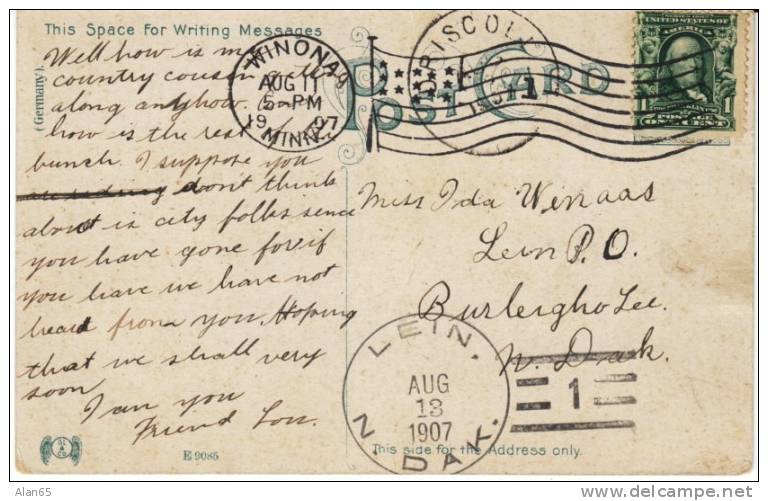 This Space For Writing Messages
Well how is my
country cousin getting
along anyhow.
how is the rest of the
bunch. I suppose you
don't think
about is city folks sence
you have gone for if
you have we have not
heard from you. Hoping
that we shall very
soon
I am you
Friend Lou.
(Germany)
E 9085
WINONA
AUG 11
5-PM
1907
MINN.
DRISCOLL
POST CARD
UNITED STATES OF
AMERICA
1
Miss Ida Winaas
Lein P.O.
Burleigh Co
N. Dak.
LEIN.
AUG
13
1907
N. DAK.
1
This side for the Address only.
Alan65
www.delcampe.net